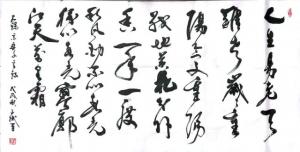 人生易老天
难老岁岁重
阳今又重阳
战地黄花分外
香一年一度
秋风劲不似春光
胜似春光寥廓
江天万里霜